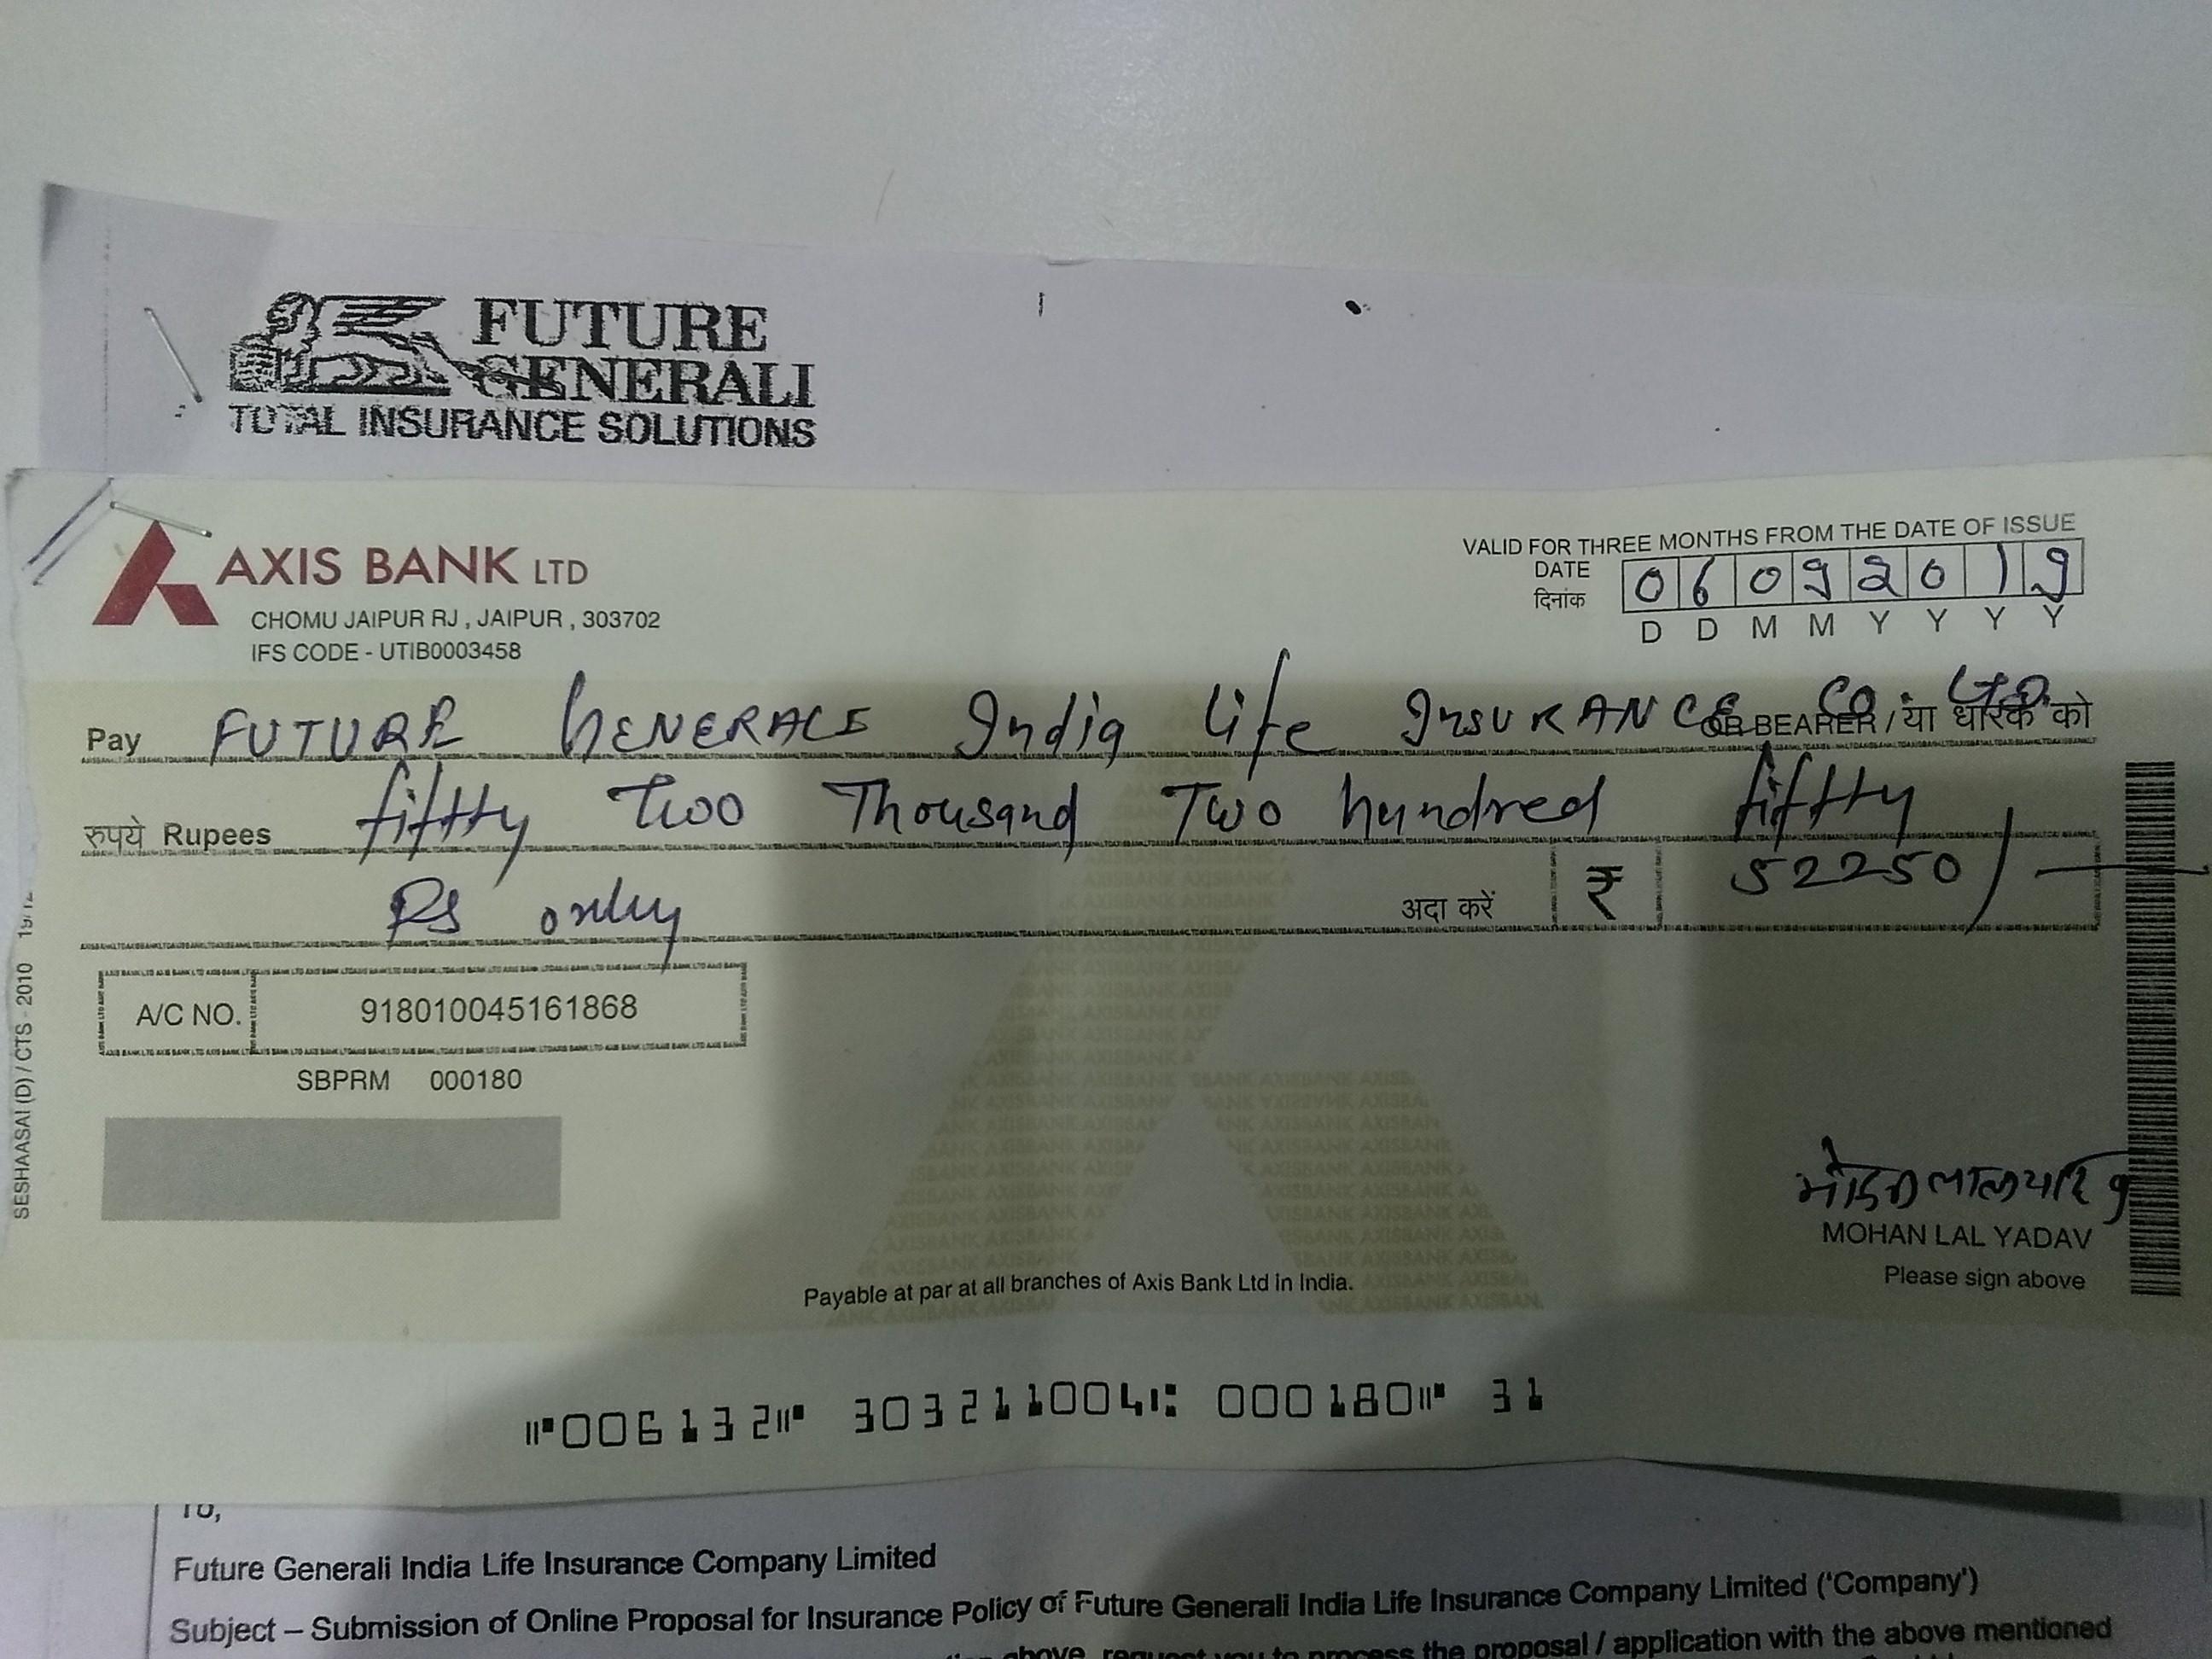 FUTURE
GENERALI
TOTAL INSURANCE SOLUTIONS
AXIS BANK LTD
CHOMU JAIPUR RJ , JAIPUR , 303702
IFS CODE - UTIB0003458
VALID FOR THREE MONTHS FROM THE DATE OF ISSUE
DATE
दिनांक
06092019
D D M M Y Y Y Y
Pay FUTURE GENERALI India Life InsURANCE CO. LTD. OR BEARER / या धारक को
रुपये Rupees fiftty Two Thousand Two hundred fiftty
Rs only अदा करें ₹ 52250/-
A/C NO. 918010045161868
SBPRM 000180
SESHAASAI (D) / CTS - 2010
मोहन लाल यादव
MOHAN LAL YADAV
Please sign above
Payable at par at all branches of Axis Bank Ltd in India.
⑈006132⑈ 303211004⑆ 000180⑈ 31
To,
Future Generali India Life Insurance Company Limited
Subject – Submission of Online Proposal for Insurance Policy of Future Generali India Life Insurance Company Limited ('Company')
above, request you to process the proposal / application with the above mentioned